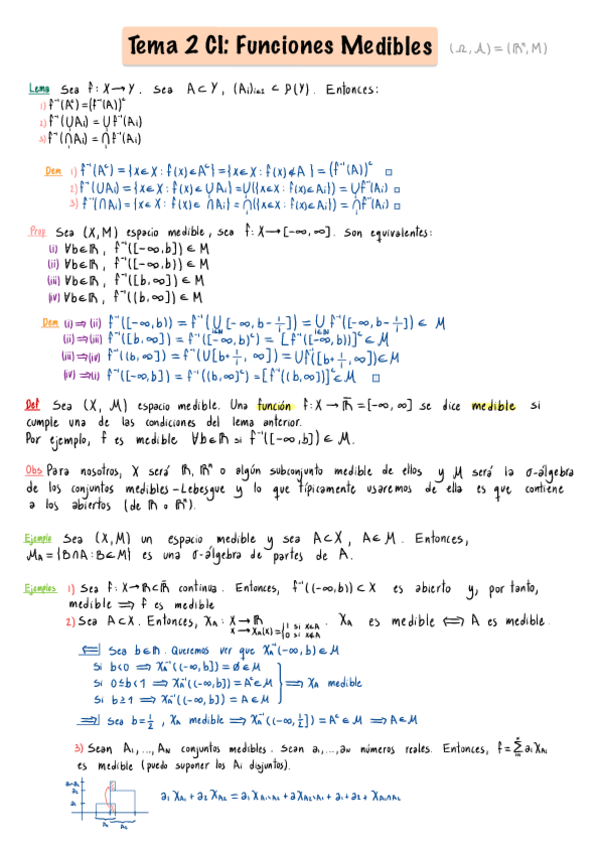 Tema 2 CI: Funciones Medibles (Ω, A) = (ℝⁿ, M)
Lema Sea f: X → Y. Sea A ⊂ Y, (Ai)i∈I ⊂ P(Y). Entonces:
1) f⁻¹(Aᶜ) = (f⁻¹(A))ᶜ
2) f⁻¹(∪Ai) = ∪f⁻¹(Ai)
3) f⁻¹(∩Ai) = ∩f⁻¹(Ai)
Dem 1) f⁻¹(Aᶜ) = {x∈X : f(x)∈Aᶜ} = {x∈X : f(x)∉A} = (f⁻¹(A))ᶜ □
2) f⁻¹(∪Ai) = {x∈X : f(x)∈∪Ai} = ∪({x∈X : f(x)∈Ai}) = ∪f⁻¹(Ai) □
3) f⁻¹(∩Ai) = {x∈X : f(x)∈∩Ai} = ∩({x∈X : f(x)∈Ai}) = ∩f⁻¹(Ai) □
Prop Sea (X,M) espacio medible, sea f: X → [-∞,∞]. Son equivalentes:
(i) ∀b∈ℝ, f⁻¹([-∞,b]) ∈ M
(ii) ∀b∈ℝ, f⁻¹([-∞,b)) ∈ M
(iii) ∀b∈ℝ, f⁻¹([b,∞]) ∈ M
(iv) ∀b∈ℝ, f⁻¹((b,∞]) ∈ M
Dem (i)⇒(ii) f⁻¹([-∞,b)) = f⁻¹(∪ i∈ℕ [-∞, b-1/i]) = ∪ i∈ℕ f⁻¹([-∞, b-1/i]) ∈ M
(ii)⇒(iii) f⁻¹([b,∞]) = f⁻¹([-∞,b)ᶜ) = [f⁻¹([-∞,b))]ᶜ ∈ M
(iii)⇒(iv) f⁻¹((b,∞]) = f⁻¹(∪[b+1/i, ∞]) = ∪f⁻¹([b+1/i, ∞]) ∈ M
(iv)⇒(i) f⁻¹([-∞,b]) = f⁻¹((b,∞]ᶜ) = [f⁻¹((b,∞])]ᶜ ∈ M □
Def Sea (X, M) espacio medible. Una función f: X → ℝ̄ = [-∞,∞] se dice medible si
cumple una de las condiciones del lema anterior.
Por ejemplo, f es medible ∀b∈ℝ si f⁻¹([-∞,b]) ∈ M.
Obs Para nosotros, X será ℝ, ℝⁿ o algún subconjunto medible de ellos y M será la σ-álgebra
de los conjuntos medibles-Lebesgue y lo que típicamente usaremos de ella es que contiene
a los abiertos (de ℝ o ℝⁿ).
Ejemplo Sea (X,M) un espacio medible y sea A⊂X, A∈M. Entonces,
M_A = {B∩A : B∈M} es una σ-álgebra de partes de A.
Ejemplos 1) Sea f: X → ℝ⊂ℝ̄ continua. Entonces, f⁻¹((-∞,b)) ⊂ X es abierto y, por tanto,
medible ⇒ f es medible
2) Sea A⊂X. Entonces, χ_A : X → ℝ x → χ_A(x) = {1 si x∈A 0 si x∉A. χ_A es medible ⇔ A es medible.
⇐ Sea b∈ℝ. Queremos ver que χ_A⁻¹(-∞,b) ∈ M
Si b<0 ⇒ χ_A⁻¹((-∞,b]) = ∅ ∈ M
Si 0≤b<1 ⇒ χ_A⁻¹((-∞,b]) = Aᶜ ∈ M ⇒ χ_A medible
Si b≥1 ⇒ χ_A⁻¹((-∞,b]) = A ∈ M
⇒ Sea b=1/2, χ_A medible ⇒ χ_A⁻¹((-∞,1/2]) = Aᶜ ∈ M ⇒ A∈M
3) Sean A₁,...,A_N conjuntos medibles. Sean a₁,...,a_N números reales. Entonces, f = Σ aᵢχ_Aᵢ
es medible (puedo suponer los Ai disjuntos).
a₁χ_A₁ + a₂χ_A₂ = a₁χ_A₁\A₂ + a₂χ_A₂\A₁ + a₁+a₂ + χ_A₁∩A₂